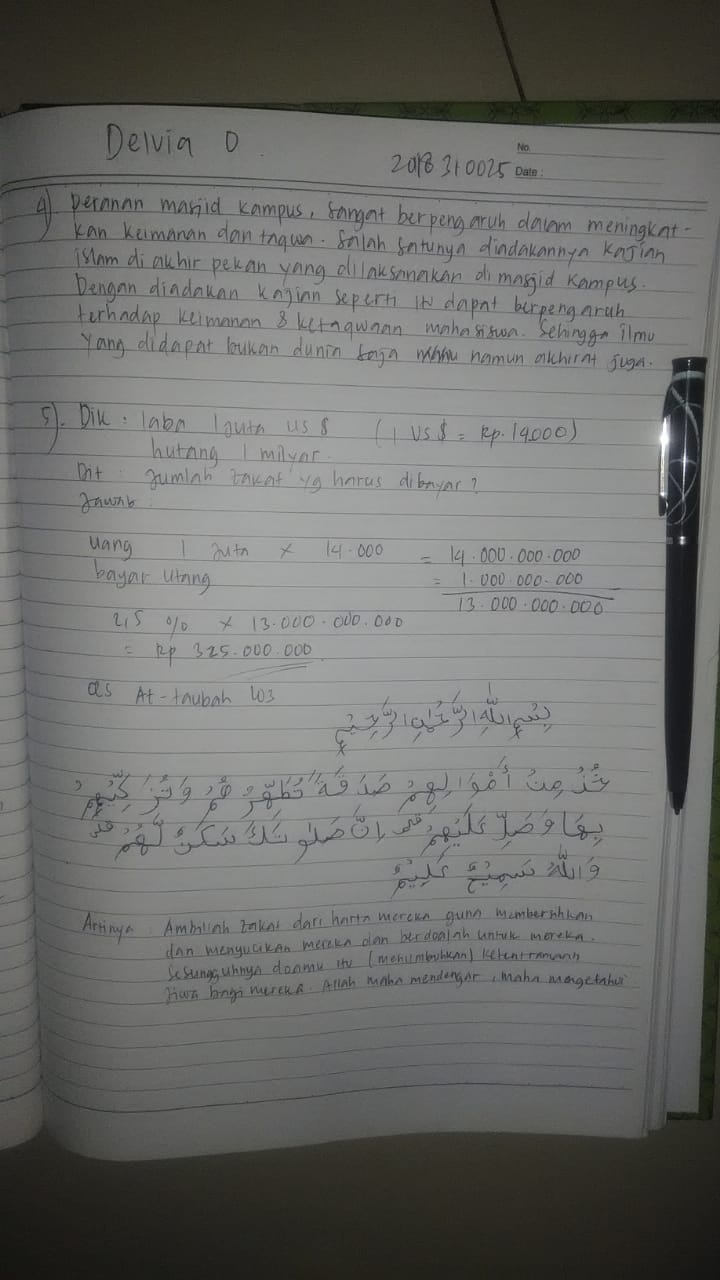 Delvia D
No.
2018 310025 Date :
4) peranan masjid kampus, sangat berpengaruh dalam meningkat-
kan keimanan dan taqwa. Salah satunya diadakannya kajian
islam di akhir pekan yang dilaksanakan di masjid kampus.
Dengan diadakan kajian seperti itu dapat berpengaruh
terhadap keimanan & ketaqwaan mahasiswa. Sehingga ilmu
yang didapat bukan dunia saja namun akhirat juga.
5). Dik : laba 1 juta US $ (1 US $ = Rp. 14000)
hutang 1 milyar.
Dit : Jumlah zakat yg harus dibayar ?
Jawab :
uang 1 juta x 14.000 = 14.000.000.000
bayar utang = 1.000.000.000
13.000.000.000
2,5 % x 13.000.000.000
= Rp 325.000.000
QS At-taubah 103
بِسْمِ اللهِ الرَّحْمٰنِ الرَّحِيْمِ
خُذْ مِنْ أَمْوَالِهِمْ صَدَقَةً تُطَهِّرُهُمْ وَتُزَكِّيْهِمْ
بِهَا وَصَلِّ عَلَيْهِمْ ۗ اِنَّ صَلٰوتَكَ سَكَنٌ لَّهُمْ ۗ
وَاللهُ سَمِيْعٌ عَلِيْمٌ
Artinya : Ambillah zakat dari harta mereka guna membersihkan
dan menyucikan mereka dan berdoalah untuk mereka.
Sesungguhnya doamu itu (menumbuhkan) ketentraman
jiwa bagi mereka. Allah maha mendengar, maha mengetahui